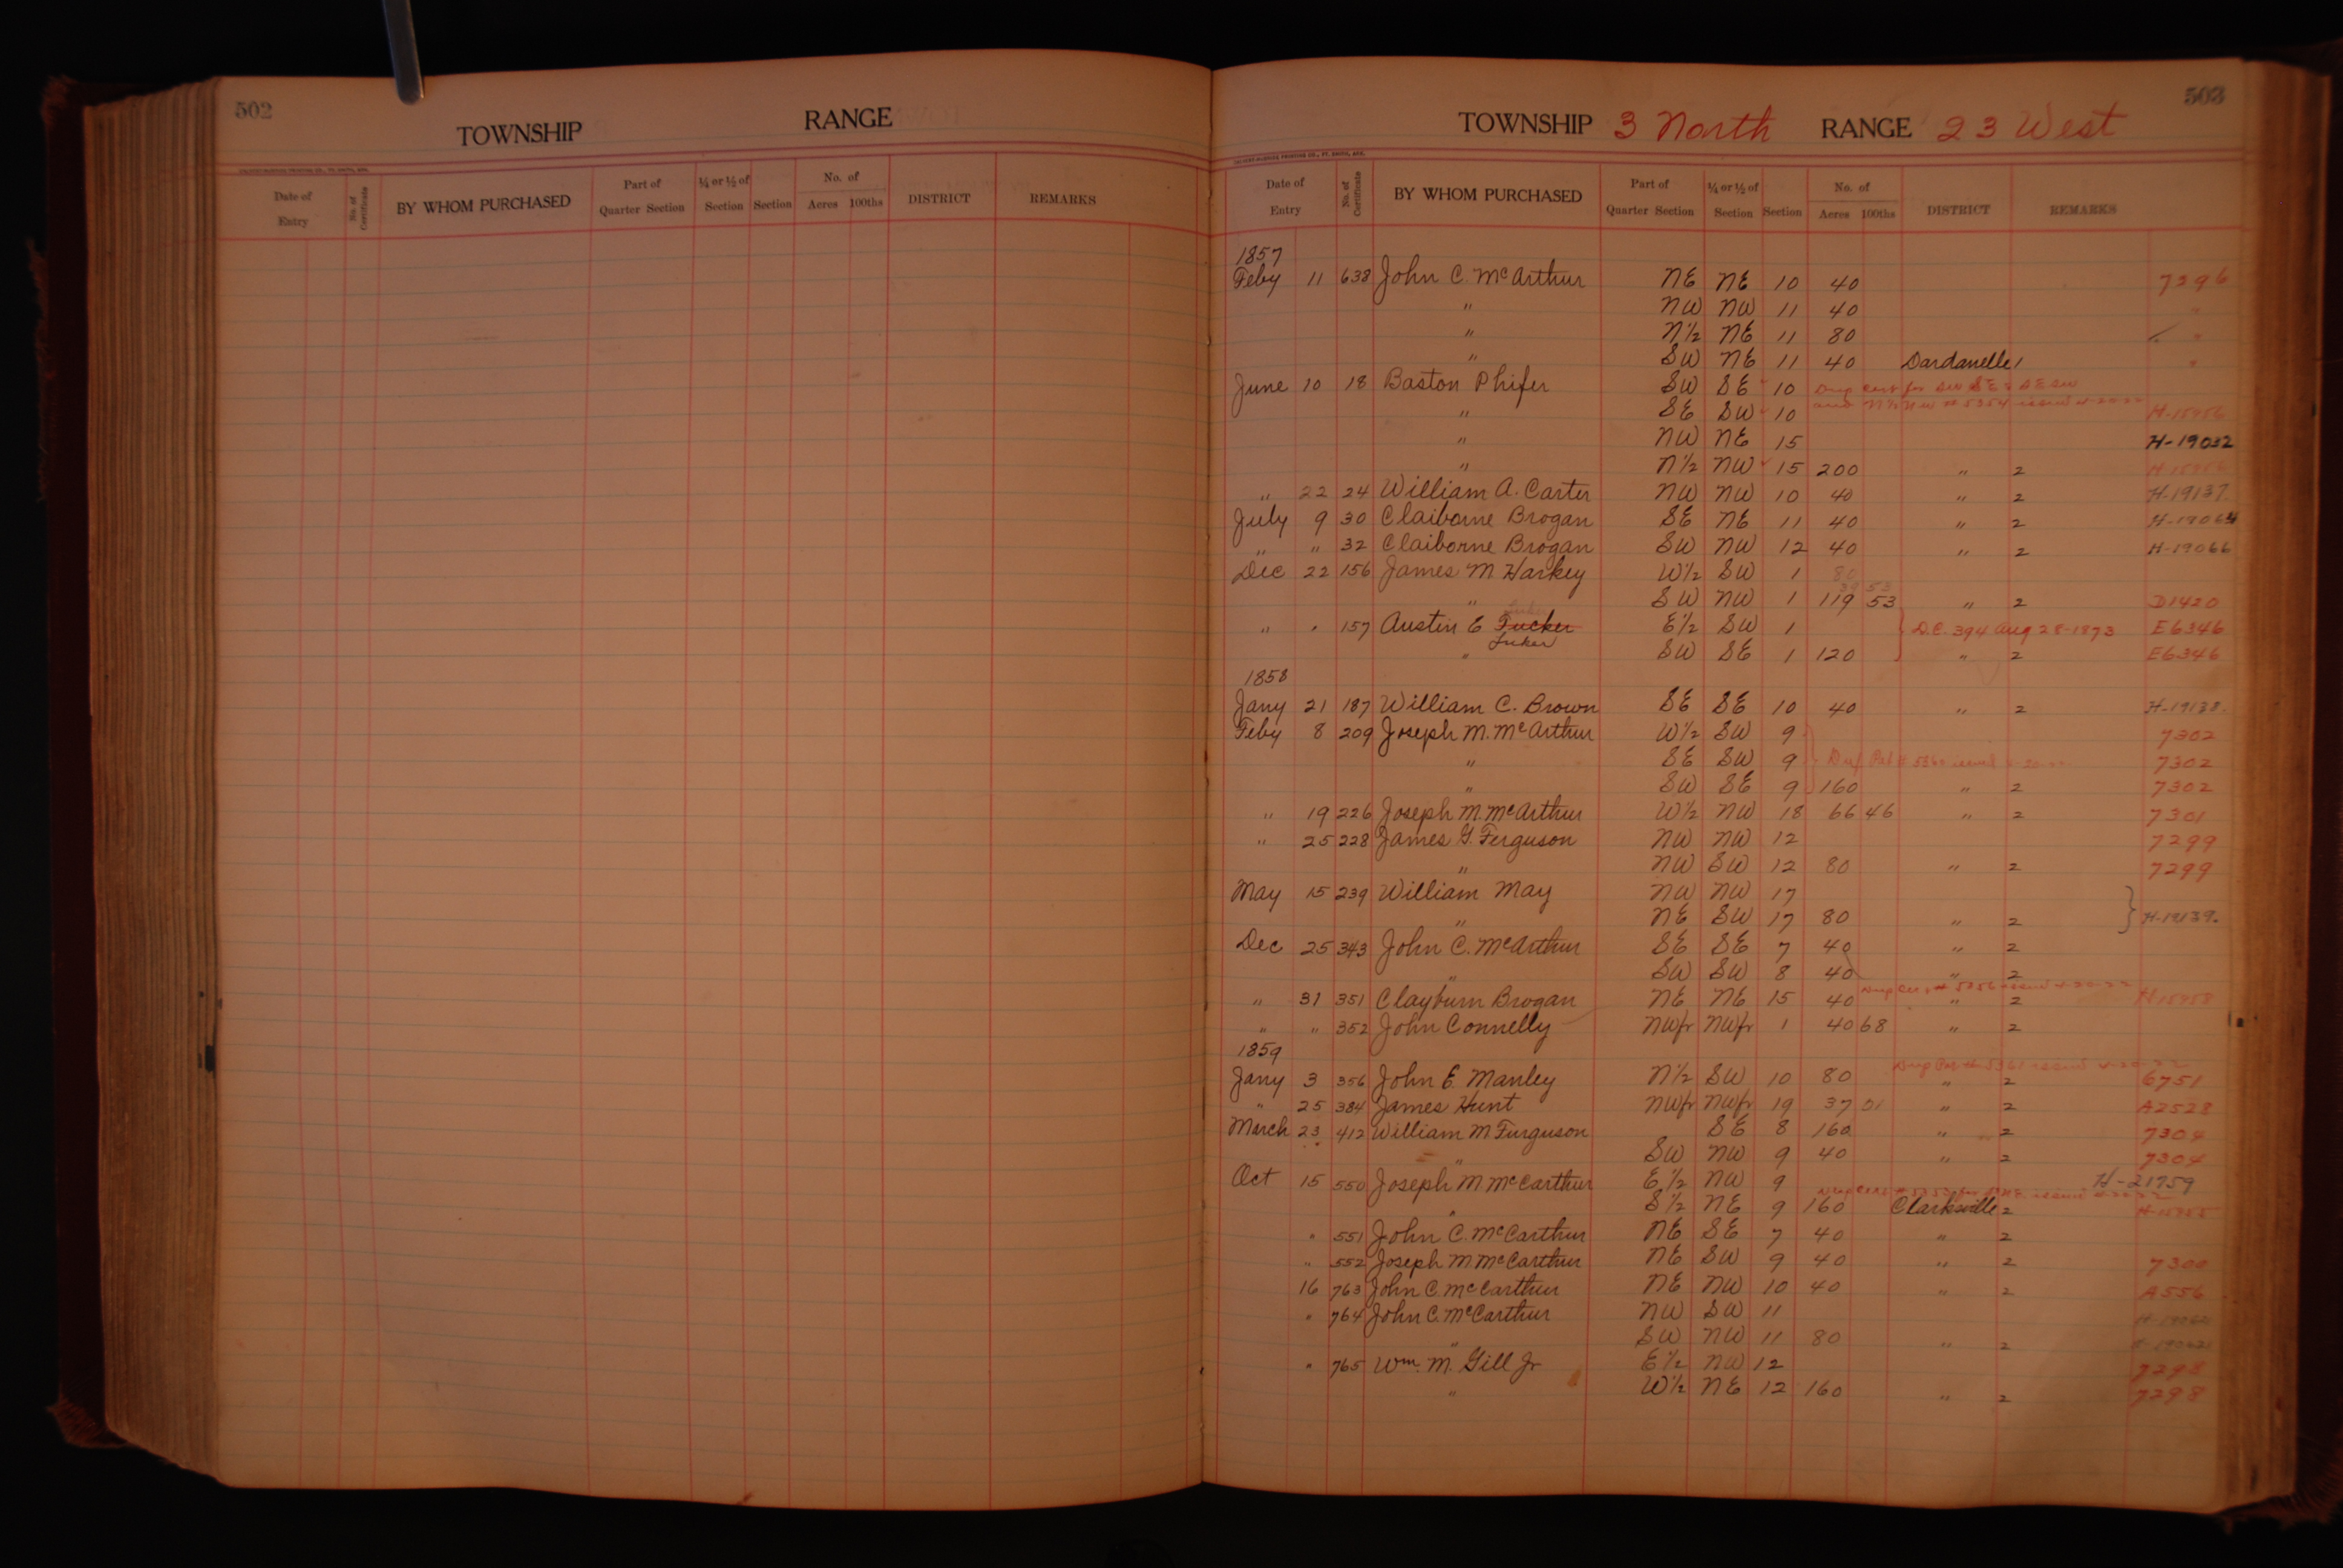 502
TOWNSHIP RANGE
Date of Entry No. of Certificate BY WHOM PURCHASED Part of Quarter Section ¼ or ½ of Section Section No. of Acres 100ths DISTRICT REMARKS
503
TOWNSHIP 3 North RANGE 23 West
Date of Entry No. of Certificate BY WHOM PURCHASED Part of Quarter Section ¼ or ½ of Section Section No. of Acres 100ths DISTRICT REMARKS
1857
Feby 11 638 John C. McArthur NE NE 10 40 7296
" NW NW 11 40 "
" N½ NE 11 80 "
" SW NE 11 40 Dardanelle 1 "
June 10 18 Baston Phifer SW SE 10 Dup Cert for SW SE & SE SW
" SE SW 10 and N½ NW # 5354 issued H-15956
" NW NE 15 H-19032
" N½ NW 15 200 " 2 H-15956
" 22 24 William A. Carter NW NW 10 40 " 2 H-19137
July 9 30 Claiborne Brogan SE NE 11 40 " 2 H-19064
" " 32 Claiborne Brogan SW NW 12 40 " 2 H-19066
Dec 22 156 James M Harkey W½ SW 1 80
" SW NW 1 119 53 " 2 D1420
" " 157 Austin E Tucker E½ SW 1 D.C. 394 Aug 28-1873 E6346
Luker
" SW SE 1 120 " 2 E6346
1858
Jany 21 187 William C. Brown SE SE 10 40 " 2 H-19138
Feby 8 209 Joseph M. McArthur W½ SW 9 7302
" SE SW 9 7302
" SW SE 9 160 " 2 7302
" 19 226 Joseph M. McArthur W½ NW 18 66 46 " 2 7301
" 25 228 James G. Ferguson NW NW 12 7299
" NW SW 12 80 " 2 7299
May 15 239 William May NW NW 17
" NE SW 17 80 " 2 H-19139.
Dec 25 343 John C. McArthur SE SE 7 40 " 2
" SW SW 8 40 " 2
" 31 351 Clayburn Brogan NE NE 15 40 " 2 H15958
" " 352 John Connelly NWfr NWfr 1 40 68 " 2
1859
Jany 3 356 John E. Manley N½ SW 10 80 " 2 6751
" 25 384 James Hunt NWfr NWfr 19 37 01 " 2 A2528
March 23 412 William M Furguson SE 8 160 " 2 7304
" SW NW 9 40 " 2 7304
Oct 15 550 Joseph M McCarthur E½ NW 9 H-21959
" S½ NE 9 160 Clarksville 2
" 551 John C. McCarthur NE SE 7 40 " 2
" 552 Joseph M McCarthur NE SW 9 40 " 2 7300
16 763 John C. McCarthur NE NW 10 40 " 2 A556
" 764 John C. McCarthur NW SW 11
" SW NW 11 80 " 2
" 765 Wm. M. Gill Jr E½ NW 12 7298
" W½ NE 12 160 " 2 7298